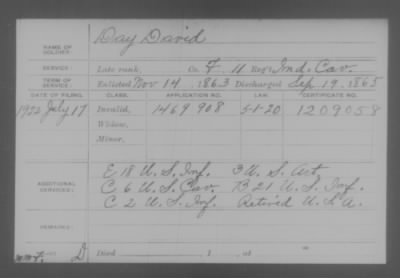 Day David
NAME OF SOLDIER:
SERVICE: Late rank, Co. F 11 Reg't Ind. Cav.
TERM OF SERVICE: Enlisted Nov 14 1863 Discharged Sep 19, 1865
DATE OF FILING. CLASS. APPLICATION NO. LAW. CERTIFICATE NO.
1922 July 17 Invalid, 1469 908 5-1-20 1209058
Widow,
Minor,
ADDITIONAL SERVICES:
E 18 U.S. Inf. 3 U.S. Art
C 6 U.S. Cav. B 21 U.S. Inf.
C 2 U.S. Inf. Retired U.S.A.
REMARKS:
D Died , 1 , at